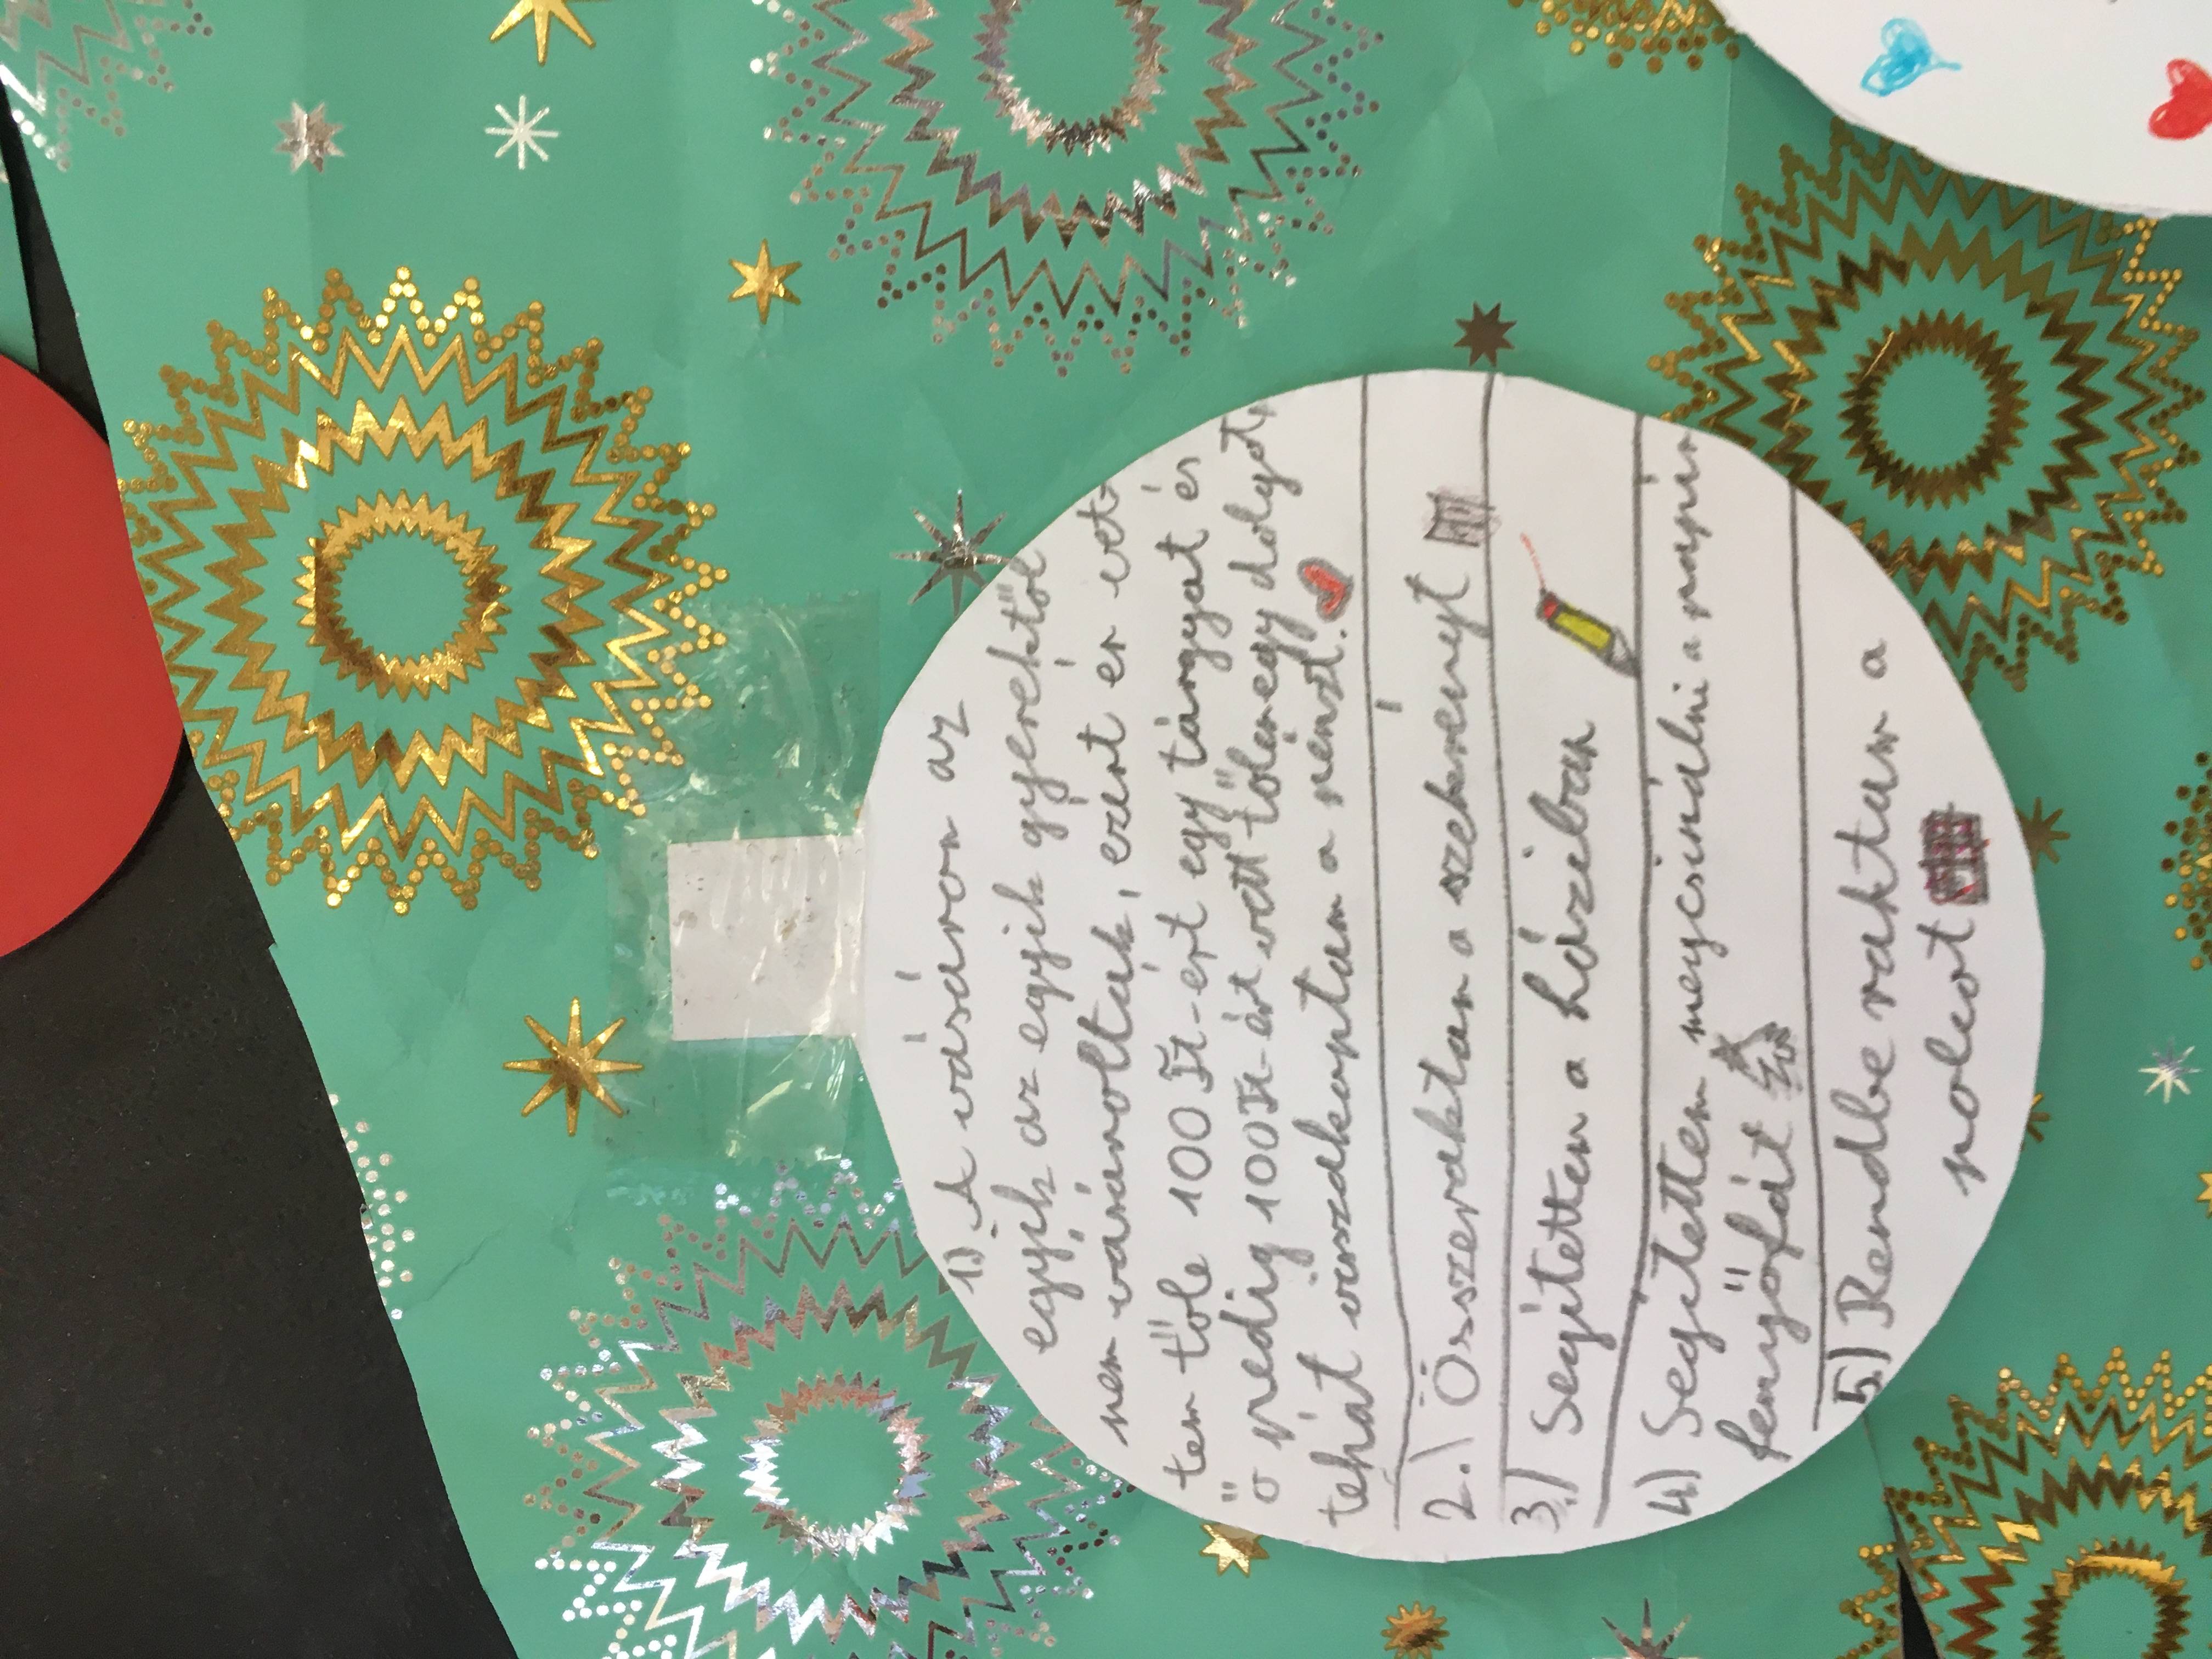 1.) A vásáron az
egyik az egyik gyerektől
nem vásároltak, ezért én vet-
tem tőle 100 Ft-ért egy tárgyat és
ő pedig 100Ft-ért vett tőlem egy dolgot,
tehát visszakaptam a pénzt.
2.) Összeraktam a szekrényt
3.) Segítettem a háziban
4.) Segítettem megcsinálni a papír
fenyőfát
5.) Rendbe raktam a
polcot